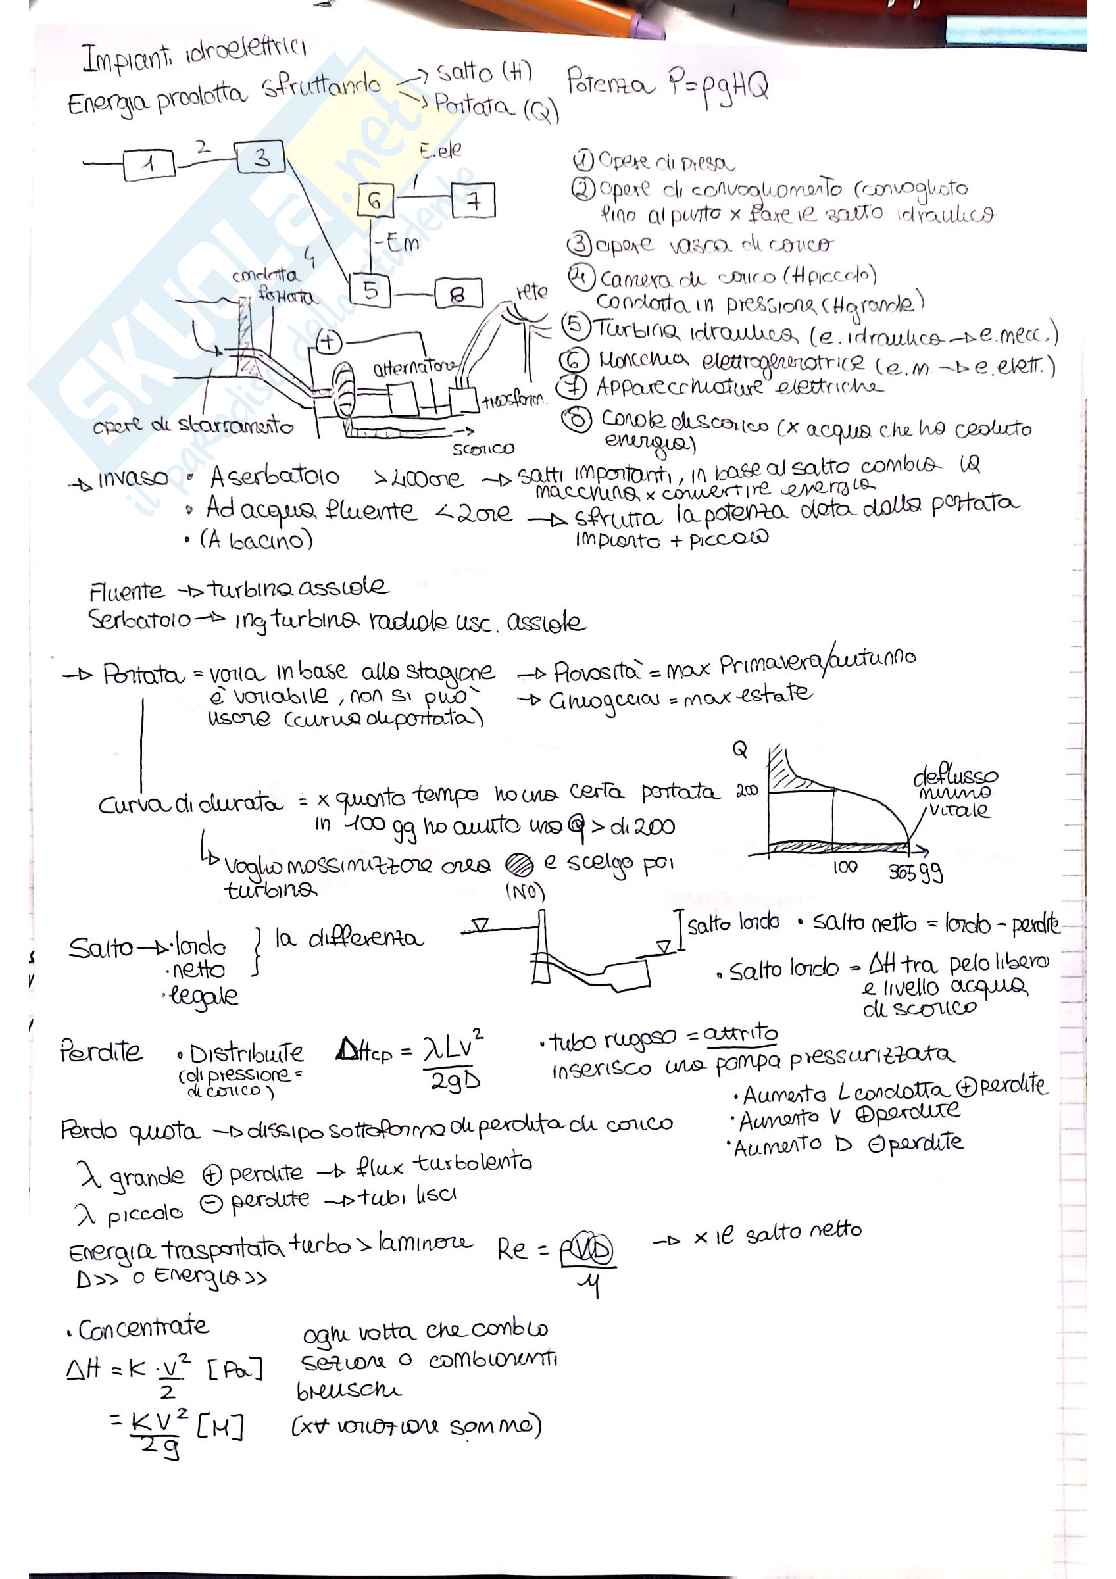 Impianti idroelettrici
Energia prodotta sfruttando → Salto (H)
→ Portata (Q)
Potenza P=ρgHQ
1
2
3
E.ele
6
7
-Em
4
5
8
condotta
forzata
rete
+
alternatore
trasform.
opere di sbarramento
scarico
① Opere di presa
② opere di convogliamento (convogliato
fino al punto x fare il salto idraulico
③ opere vasca di carico
④ Camera di carico (H piccolo)
Condotta in pressione (H grande)
⑤ Turbina idraulica (e. idraulica → e.mecc.)
⑥ Macchina elettrogeneratrice (e.m → e.elett.)
⑦ Apparecchiature elettriche
⑧ Canale di scarico (x acqua che ha ceduto
energia)
→ invaso • A serbatoio >400ore → salti importanti, in base al salto cambio la
macchina x convertire energia
• Ad acqua fluente <2ore → sfrutta la potenza data dalla portata
impianto + piccolo
• (A bacino)
Fluente → turbina assiale
Serbatoio → ing turbina radiale usc. assiale
→ Portata = varia in base alla stagione → Piovosità = max Primavera/autunno
è variabile, non si può → Ghiacciai = max estate
usare (curva di portata)
Curva di durata = x quanto tempo ho una certa portata
in 100 gg ho avuto una Q > di 200
↳ voglio massimizzare area e scelgo poi
turbina
(No)
Q
200
100
365 gg
deflusso
minimo
vitale
Salto → • lordo
• netto
• legale
} la differenza
salto lordo • salto netto = lordo - perdite
• Salto lordo = ΔH tra pelo libero
e livello acqua
di scarico
Perdite • Distribuite ΔHcp = λLv²/2gD
(di pressione =
di carico)
• tubo rugoso = attrito
inserisco una pompa pressurizzata
• Aumento L condotta ⊕ perdite
• Aumento V ⊕ perdite
• Aumento D ⊖ perdite
Perdo quota → dissipo sottoforma di perdita di carico
λ grande ⊕ perdite → flux turbolento
λ piccolo ⊖ perdite → tubi lisci
Energia trasportata turbo > laminare Re = ρVD/μ → x il salto netto
D>> o Energia >>
• Concentrate
ΔH = K · v²/2 [Pa]
= KV²/2g [M]
ogni volta che cambio
sezione o cambiamenti
bruschi
(x∀ variazione sommo)
SKUOLA.net
il paradiso dello studente